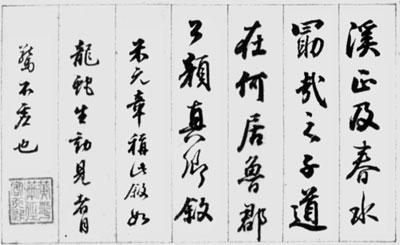 溪正及春水
勖哉之子道
在何居魯郡
公顏真卿敘
米元章稱此敘如
龍蛇生動見者目
驚不虛也